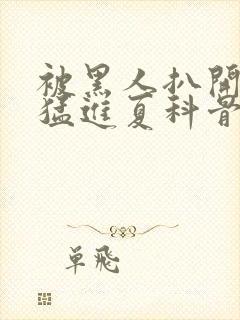 被黑人扒開
猛進夏科骨
單飛